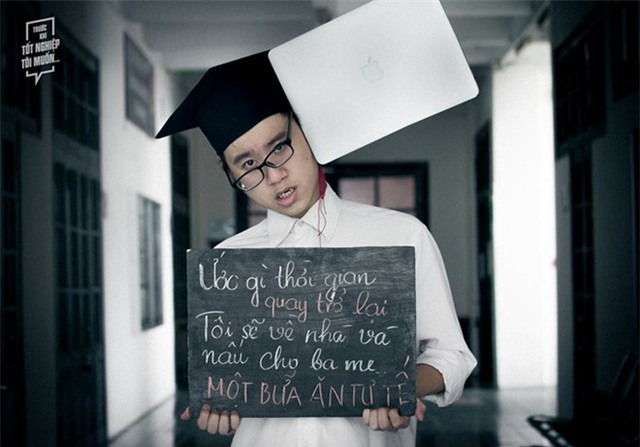 TRƯỚC
KHI
TỐT NGHIỆP
TÔI MUỐN...
Ước gì thời gian
quay trở lại
Tôi sẽ về nhà và
nấu cho ba mẹ
MỘT BỮA ĂN TỬ TẾ